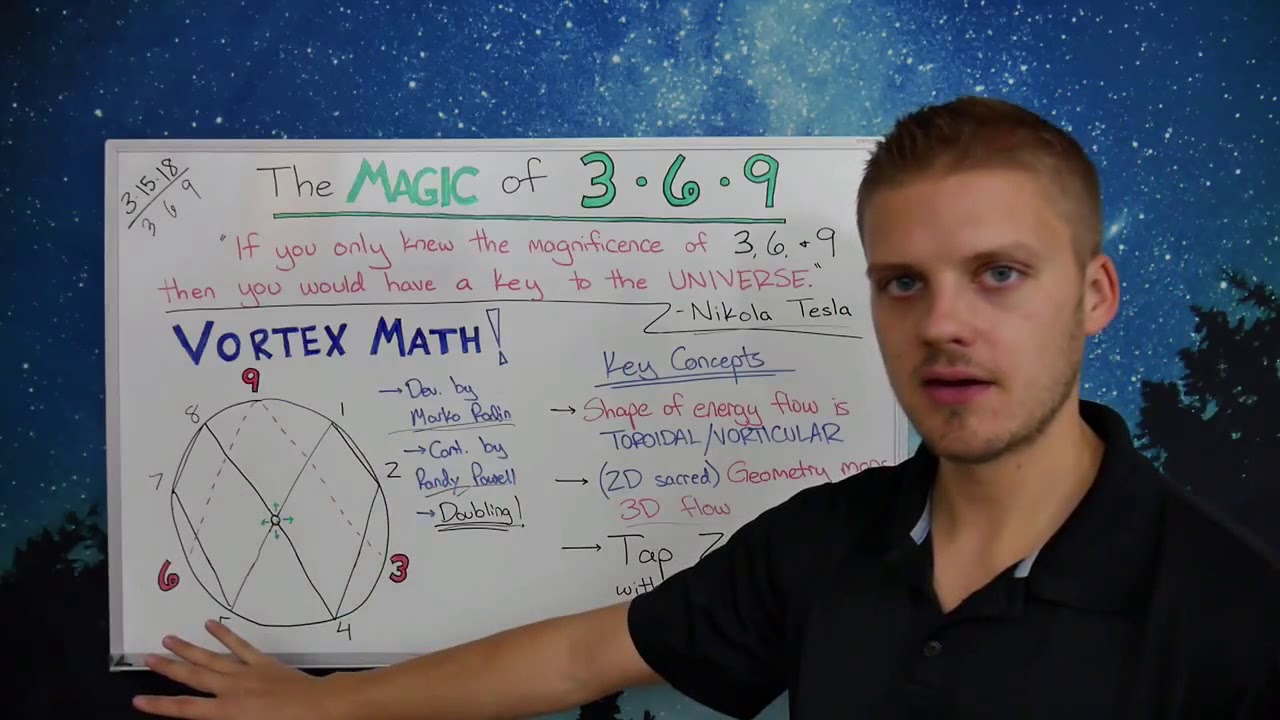 3·15·18
3 6 9
The MAGIC of 3·6·9
"If you only knew the magnificence of 3, 6, + 9
then you would have a key to the UNIVERSE."
-Nikola Tesla
VORTEX MATH!
9
8
1
7
2
6
3
5
4
→ Dev. by
Marko Rodin
→ Cont. by
Randy Powell
→ Doubling!
Key Concepts
→ Shape of energy flow is
TOROIDAL/VORTICULAR
→ (2D sacred) Geometry maps
3D flow
→ Tap
with